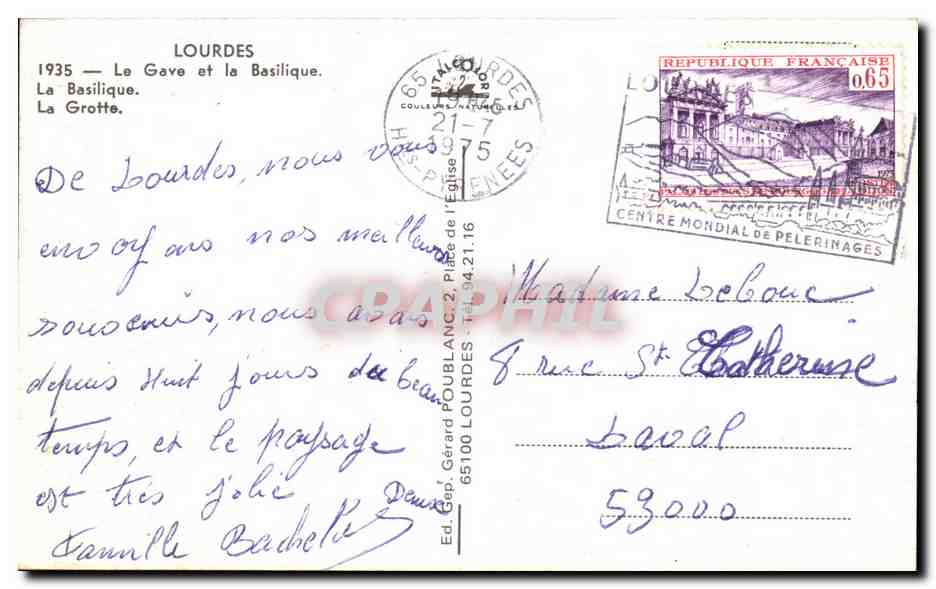 LOURDES
1935 — Le Gave et la Basilique.
La Basilique.
La Grotte.
De Lourdes, nous vous
envoyons nos meilleurs
souvenirs, nous avons
depuis huit jours du beau
temps, et le paysage
est très jolie
Famille
Ed. Gep. Gérard POUBLANC. 2, Place de l'Eglise
65100 LOURDES - Tél. 94.21.16
65 LOURDES
COULEURS NATURELLES
21-7
1975
HTES-PYRENEES
REPUBLIQUE FRANÇAISE
0,65
LOURDES
CENTRE MONDIAL DE PELERINAGES
Madame Lebouc
8 rue St Catherine
Laval
53000
CPAPHIL